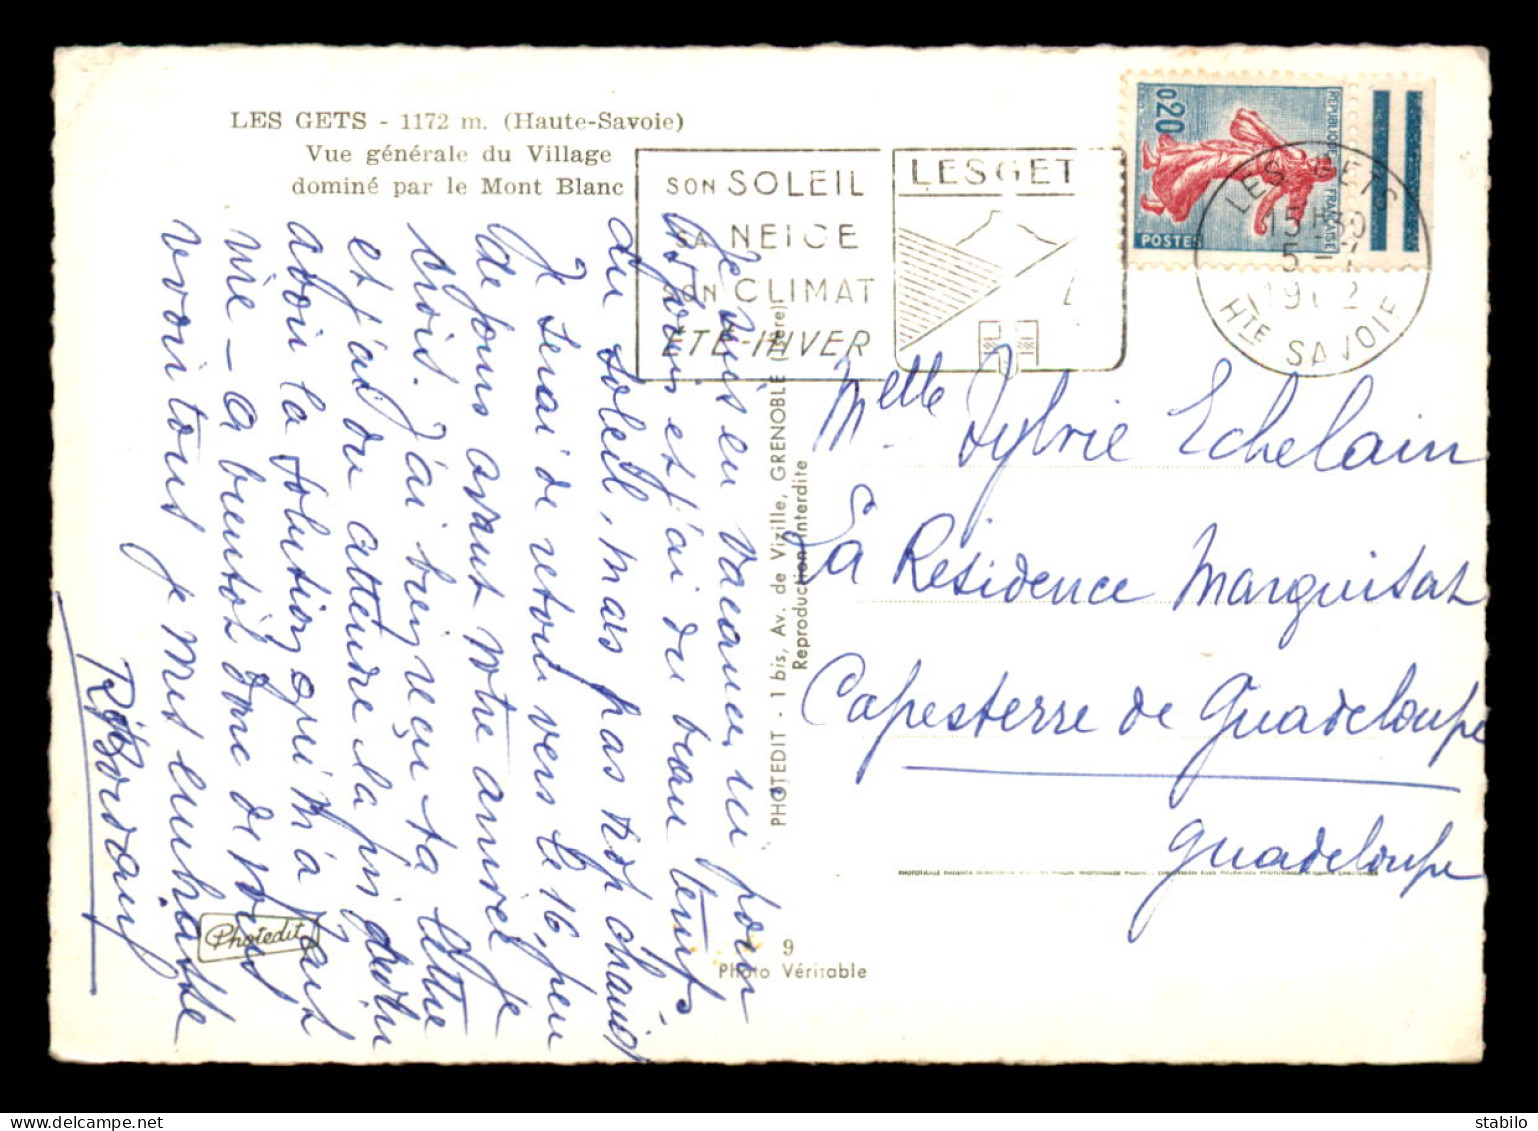 LES GETS - 1172 m. (Haute-Savoie)
Vue générale du Village
dominé par le Mont Blanc
SON SOLEIL
SA NEIGE
SON CLIMAT
ÉTÉ-HIVER
LES GET
0,20
POSTES
REPUBLIQUE FRANÇAISE
LES GETS
15H30
5
HTE SAVOIE
Je suis en vacances ici pour
15 jours et j'ai du beau temps
du soleil, mais pas trop chaud
Je serai de retour vers le 16, peu
de jours avant votre arrivée je
crois. J'ai bien reçu ta lettre
et j'ai dû attendre la fin pour
avoir la solution qui m'a fait
rire - A bientôt donc de vous
revoir tous je vous embrasse
PHOTEDIT - 1 bis, Av. de Vizille, GRENOBLE (Isère)
Reproduction Interdite
Melle Sylvie Echelain
La Résidence Marquisat
Capesterre de Guadeloupe
Guadeloupe
Photedit
9
Photo Véritable
delcampe.net
stabilo